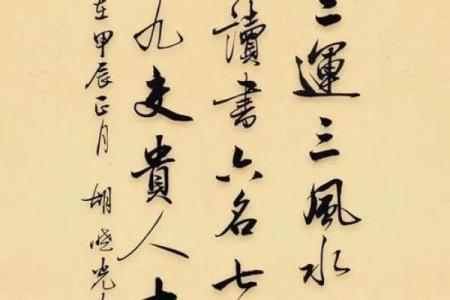 二運三風水
讀書六名七
九交貴人
在甲辰正月 胡